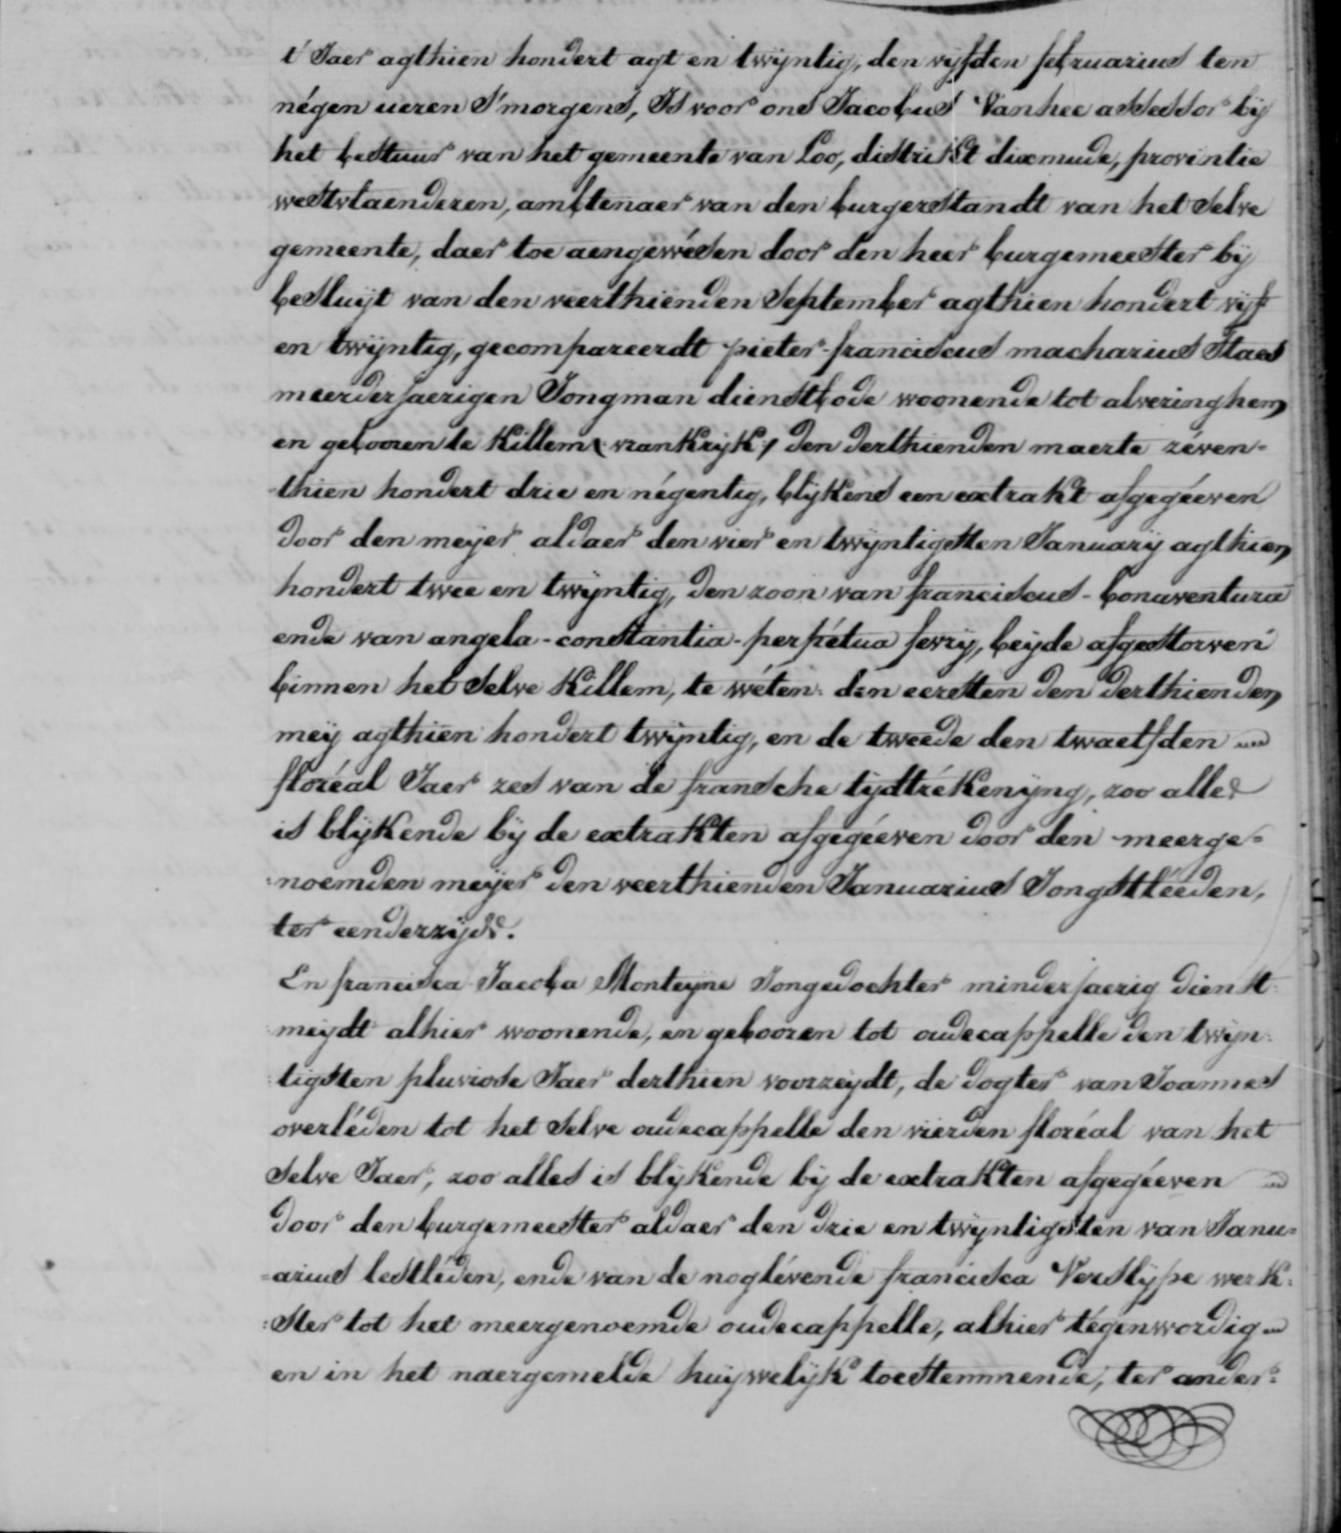 t' Jaer agthien hondert agt en twijntig, den vijfden februarius ten
négen ueren S'morgens, Is voor ons Jacobus Vanhee assessor bij
het bestuur van het gemeente van Loo, distrikt dixmude, provintie
westvlaenderen, ambtenaer van den burgerstandt van het selve
gemeente, daer toe aengewésen door den heer burgemeester bij
besluijt van den veerthienden September agthien hondert vijf
en twijntig, gecompareerdt pieter-franciscus macharius Staes
meerderjaerigen Jongman dienstbode woonende tot alveringhem
en gebooren te Killem (vrankrijk) den derthienden maerte zéven-
-thien hondert drie en négentig, blijkens een extrakt afgegéeven
door den meijer aldaer den vier en twijntigsten Januarij agthien
hondert twee en twijntig, den zoon van franciscus-bonaventura
ende van angela-constantia-perpétua fevrij, beijde afgestorven
binnen het selve Killem, te wéten: den eersten den derthienden
meij agthien hondert twijntig, en de tweede den twaelfden
floréal Jaer zes van de fransche tijdtrékenijng, zoo alles
is blijkende bij de extrakten afgegéeven door den meerge=
:noemden meijer den veerthienden Januarius Jongstléeden,
ter eenderzijds.
En francisca Jacoba Monteijne Jongedochter minderjaerig dienst:
:meijdt alhier woonende, en gebooren tot oudecappelle den twijn:
:tigsten pluviose Jaer derthien voorzeijdt, de dogter van Joannes
overléden tot het selve oudecappelle den vierden floréal van het
selve Jaer, zoo alles is blijkende bij de extrakten afgegéeven
door den burgemeester aldaer den drie en twijntigsten van Janu=
=arius lestléden, ende van de noglévende francisca Verslijpe werk:
:ster tot het meergenoemde oudecappelle, alhier tégenwordig
en in het naergemelde huijwelijk toestemmende, ter ander: